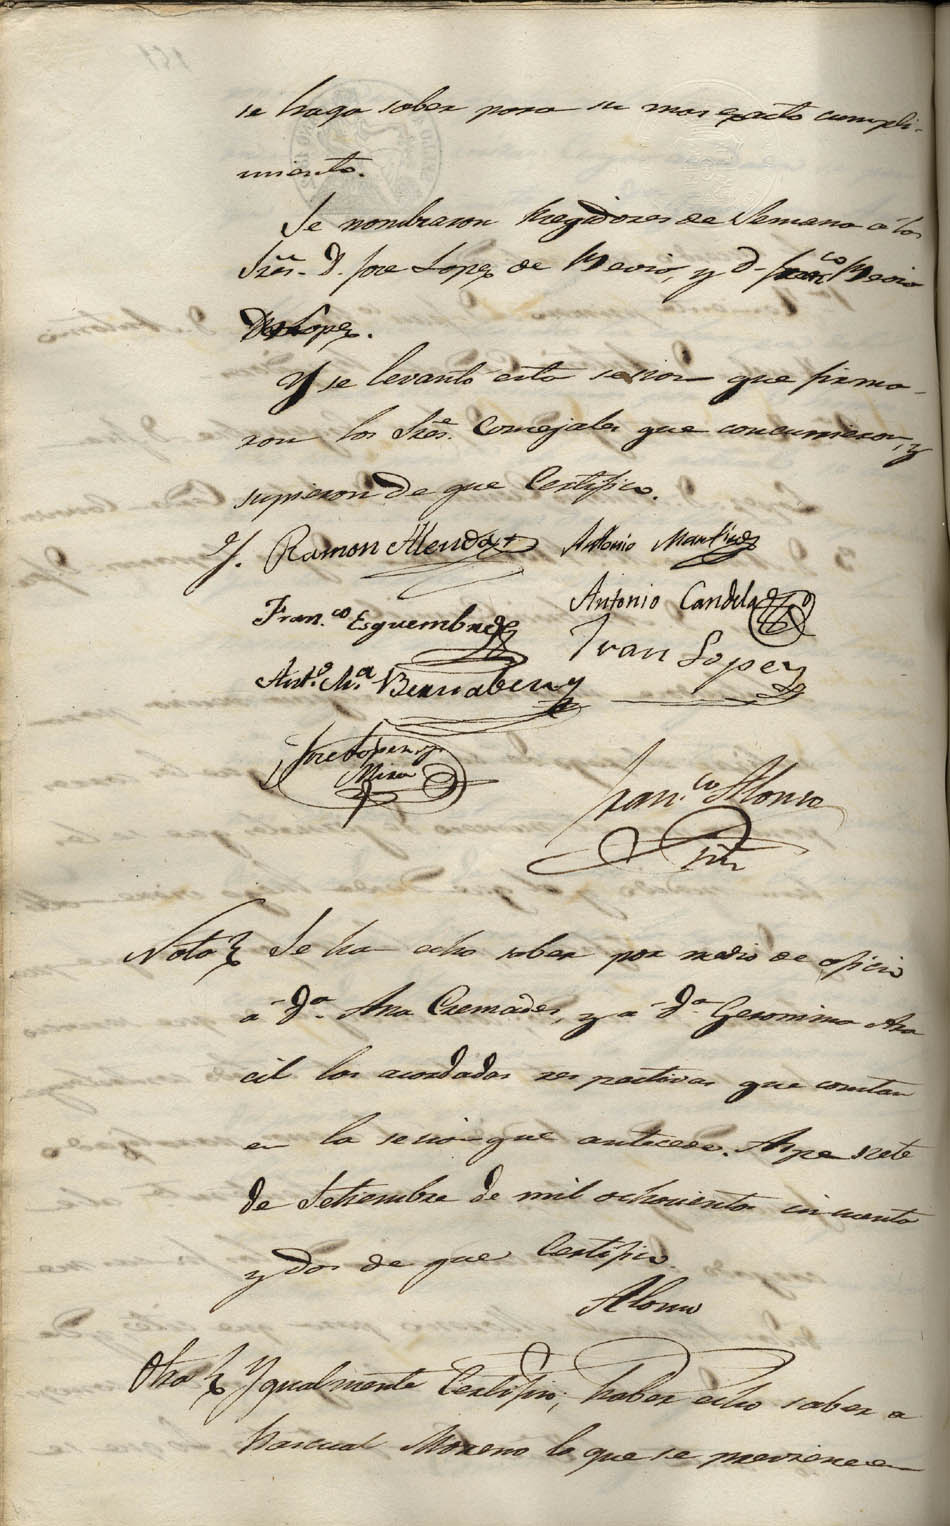 se haga saber para su mas exacto cumpli-
miento.
Se nombraron Regidores de Semana a los
Sres. D. Jose Lopez de y D. Franco
Lopez.
Y se levantó esta sesion que firma-
ron los Sres. Concejales que concurrieron, y
supieron de que Certifico.
Ramon Alenda Antonio Martinez
Antonio Candela
Fran.co Esquembre
Juan Lopez
Ant.o M.a Bernabeu
Jose Lopez y
Mira
Fran.co Alonso
Nota Se ha echo saber por medio de oficio
a D.a Ana Cremades, y a D.a Geronima Ara
cil los acordados respectivos que constan
en la sesion que antecede. Aspe siete
de Setiembre de mil ochocientos cincuenta
y dos de que Certifico.
Alonso
Otra Ygualmente Certifico, haber echo saber a
Pascual Moreno lo que se previene en